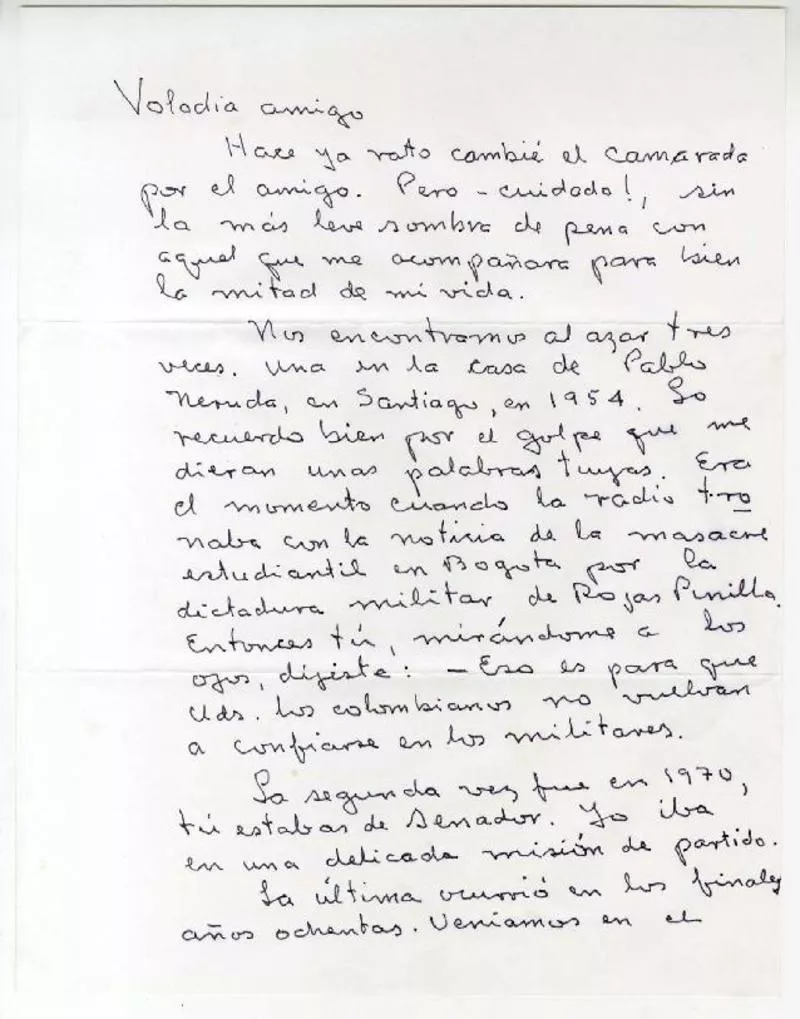 Volodia amigo
Hace ya rato cambié el camarada
por el amigo. Pero - cuidado!, sin
la más leve sombra de pena con
aquel que me acompañara para bien
la mitad de mi vida.
Nos encontramos al azar tres
veces. Una en la casa de Pablo
Neruda, en Santiago, en 1954. Lo
recuerdo bien por el golpe que me
dieran unas palabras tuyas. Era
el momento cuando la radio tro
naba con la noticia de la masacre
estudiantil en Bogotá por la
dictadura militar de Rojas Pinilla.
Entonces tú, mirándome a los
ojos, dijiste: - Eso es para que
Uds. los colombianos no vuelvan
a confiarse en los militares.
La segunda vez fue en 1970,
tú estabas de Senador. Yo iba
en una delicada misión de partido.
La última ocurrió en los finales
años ochentas. Veníamos en el